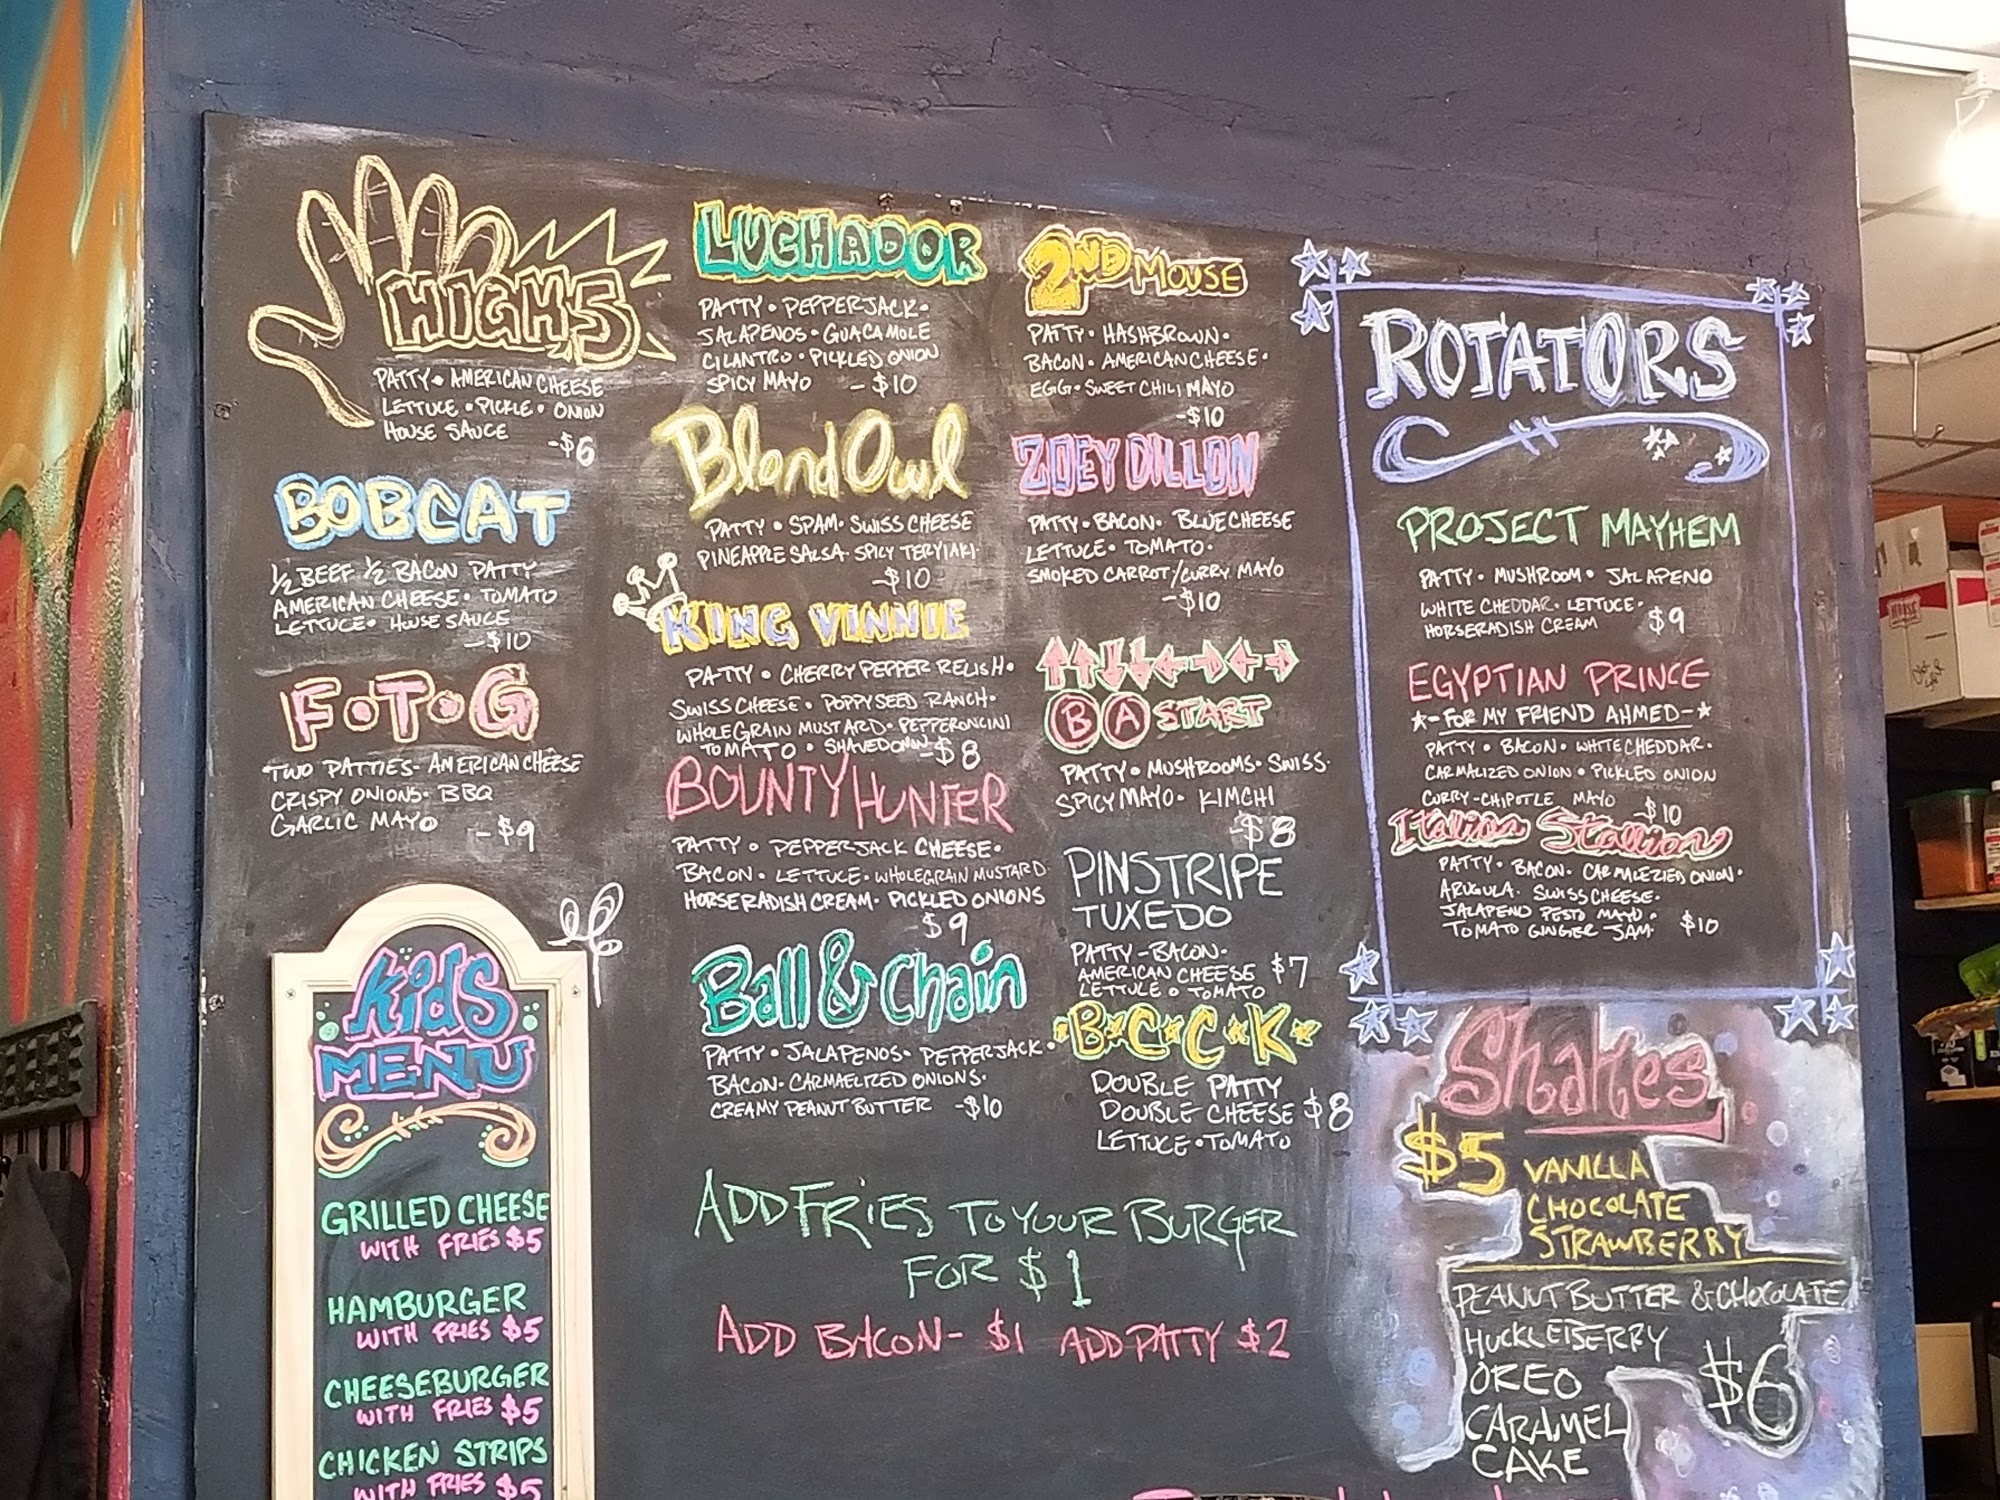 HIGH 5
PATTY • AMERICAN CHEESE
LETTUCE • PICKLE • ONION
HOUSE SAUCE
-$6
BOBCAT
1/2 BEEF 1/2 BACON PATTY
AMERICAN CHEESE • TOMATO
LETTUCE • HOUSE SAUCE
-$10
F•T•G
TWO PATTIES - AMERICAN CHEESE
CRISPY ONIONS • BBQ
GARLIC MAYO -$9
KIDS
MENU
GRILLED CHEESE
WITH FRIES $5
HAMBURGER
WITH FRIES $5
CHEESEBURGER
WITH FRIES $5
CHICKEN STRIPS
WITH FRIES $5
LUCHADOR
PATTY • PEPPERJACK •
JALAPENOS • GUACAMOLE
CILANTRO • PICKLED ONION
SPICY MAYO - $10
Blond Owl
PATTY • SPAM • SWISS CHEESE
PINEAPPLE SALSA • SPICY TERYIAKI •
-$10
KING VINNIE
PATTY • CHERRY PEPPER RELISH •
SWISS CHEESE • POPPYSEED RANCH •
WHOLE GRAIN MUSTARD • PEPPERONCINI
TOMATO • SHAVED ONION -$8
BOUNTY HUNTER
PATTY • PEPPERJACK CHEESE •
BACON • LETTUCE • WHOLEGRAIN MUSTARD •
HORSERADISH CREAM • PICKLED ONIONS
-$9
Ball & Chain
PATTY • JALAPENOS • PEPPERJACK •
BACON • CARMAELIZED ONIONS •
CREAMY PEANUT BUTTER -$10
2ND MOUSE
PATTY • HASHBROWN •
BACON • AMERICAN CHEESE •
EGG • SWEET CHILI MAYO
-$10
ZOEY DILLON
PATTY • BACON • BLUE CHEESE
LETTUCE • TOMATO •
SMOKED CARROT/CURRY MAYO
-$10
↑↑↓↓←→←→
B A START
PATTY • MUSHROOMS • SWISS •
SPICY MAYO • KIMCHI
-$8
PINSTRIPE
TUXEDO
PATTY - BACON •
AMERICAN CHEESE $7
LETTUCE • TOMATO
•B•C•C•K•
DOUBLE PATTY
DOUBLE CHEESE $8
LETTUCE • TOMATO
ADD FRIES TO YOUR BURGER
FOR $1
ADD BACON - $1 ADD PATTY $2
ROTATORS
PROJECT MAYHEM
PATTY • MUSHROOM • JALAPENO
WHITE CHEDDAR • LETTUCE •
HORSERADISH CREAM $9
EGYPTIAN PRINCE
★-FOR MY FRIEND AHMED-★
PATTY • BACON • WHITE CHEDDAR •
CARMALIZED ONION • PICKLED ONION
CURRY-CHIPOTLE MAYO -$10
Italian Stallion
PATTY • BACON • CARMALEZIED ONION •
ARUGULA • SWISS CHEESE •
JALAPENO PESTO MAYO •
TOMATO GINGER JAM • $10
Shakes
$5 VANILLA
CHOCOLATE
STRAWBERRY
PEANUT BUTTER & CHOCOLATE
HUCKLEBERRY
OREO $6
CARAMEL
CAKE